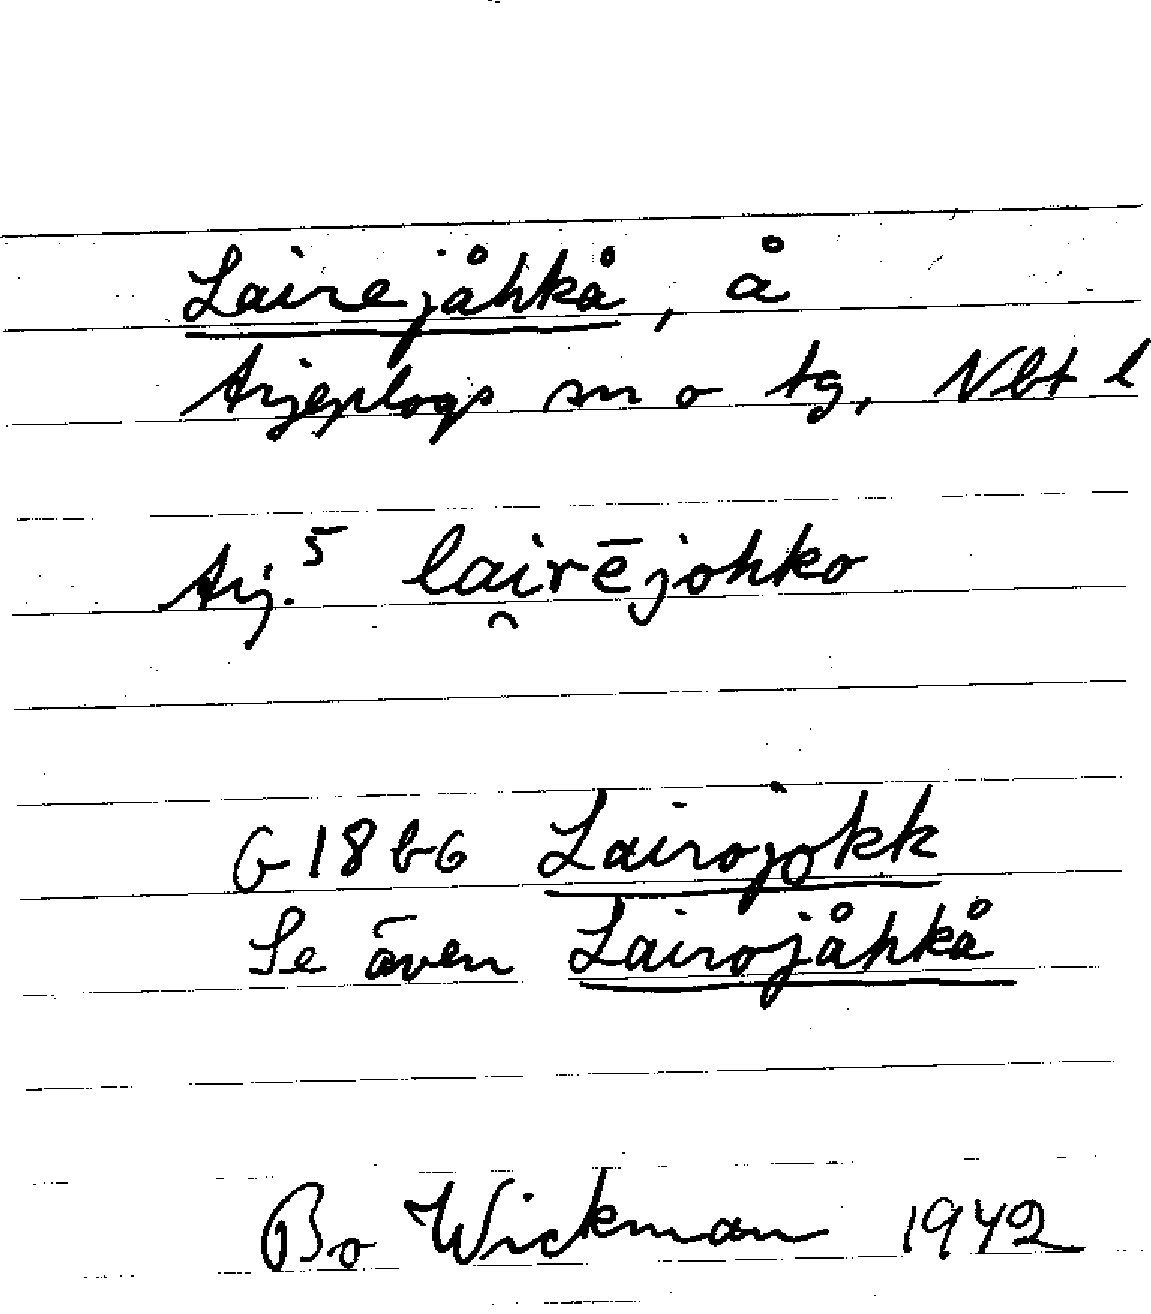 Lairejåhkå, å
Arjeplogs sn o tg, Nbt l
Arj.5 lai̯rējohko
G 18 b6 Lairojokk
Se även Lairojåhkå
Bo Wickman 1942